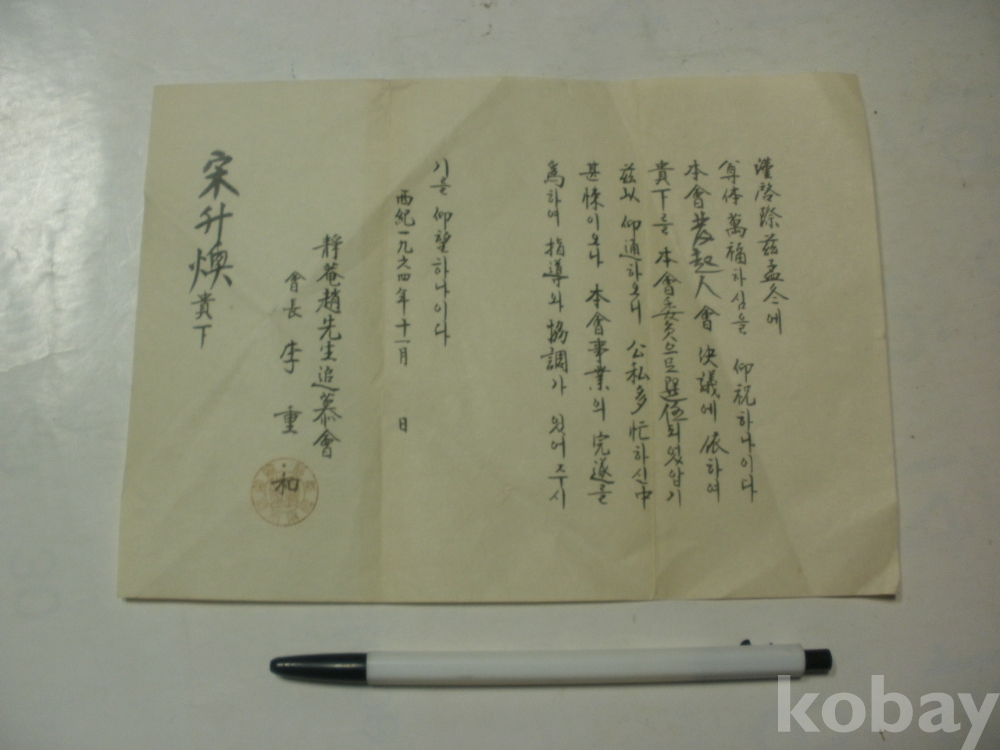 謹啓際玆孟冬에
尊体萬福하심을 仰祝하나이다
本會發起人會 決議에 依하여
貴下를 本會委員으로 選任되었압기
玆以 仰通하오니 公私多忙하신中
甚悚이오나 本會事業의 完遂를
爲하여 指導와 協調가 있어주시
기를 仰望하나이다
西紀一九六四年十一月 日
靜菴趙先生追慕會
會長 李重和
宋升煥 貴下
kobay